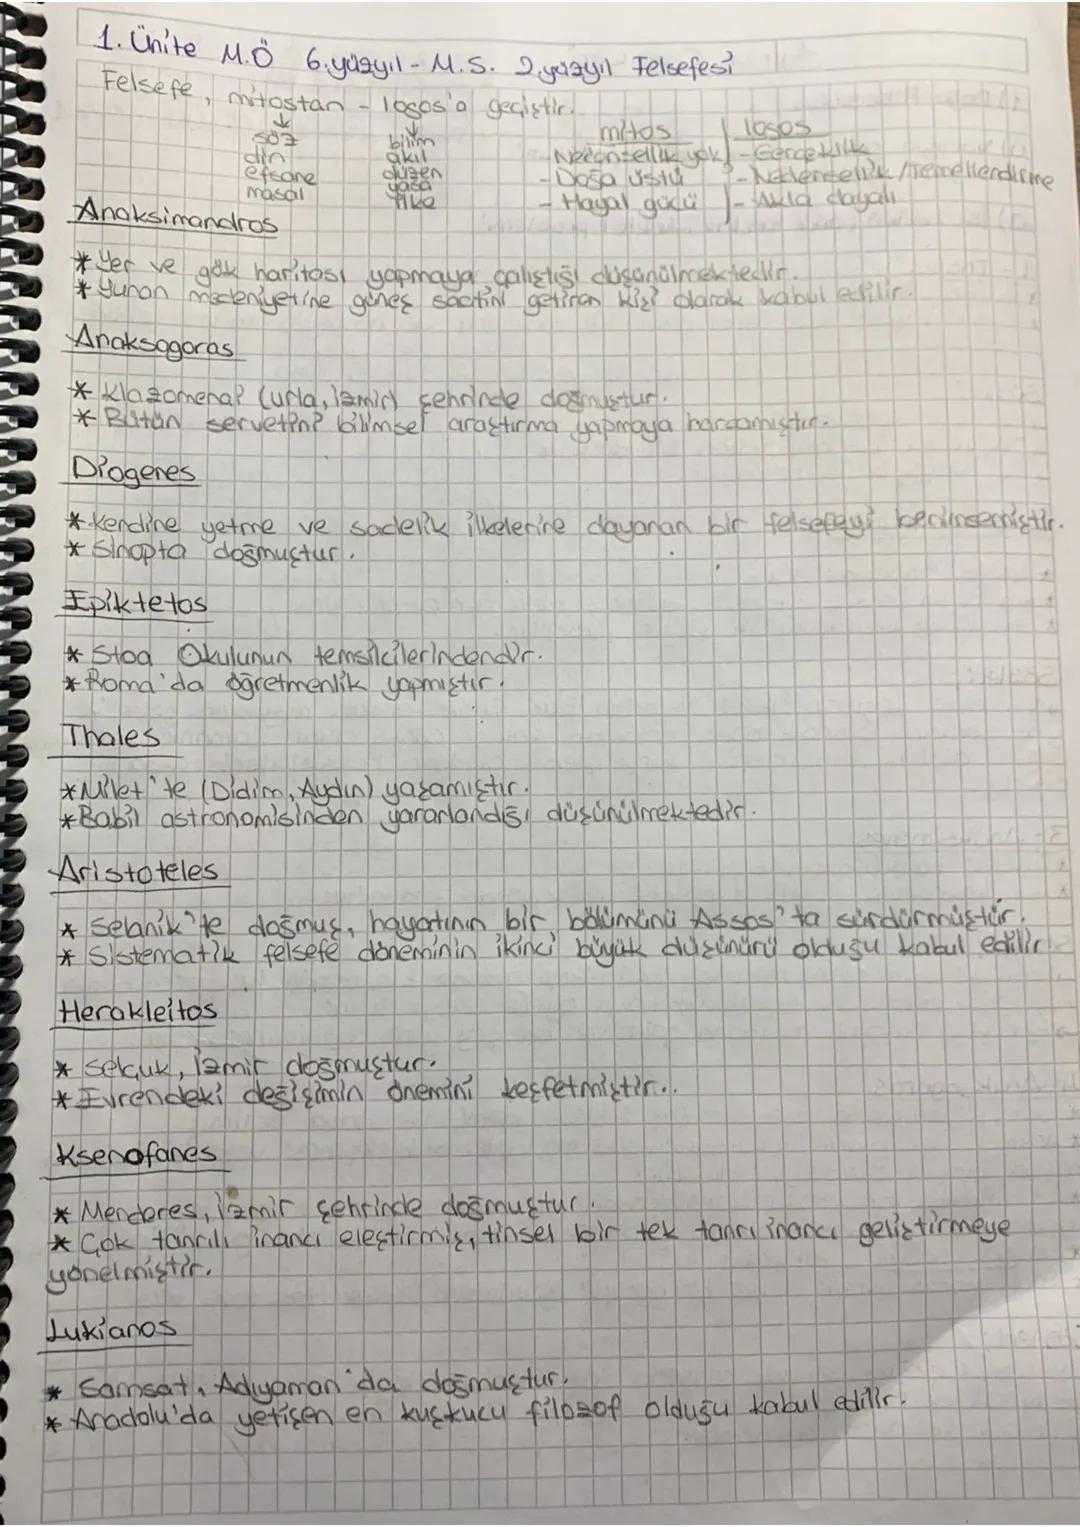 1. Ünite M.Ö 6.yüzyıl - M.S. 2.yüzyıl Felsefesi
Felsefe, mitostan - logos'a geçiştir.
söz
din
efsane
masal
bilim
akıl
düzen
yasa
ilke
mitos
- Nedensellik yok
- Doğa üstü
- Hayal gücü
logos
- Gerçeklik
- Nedensellik / Temellendirme
- Akla dayalı
Anaksimandros
* Yer ve gök haritası yapmaya çalıştığı düşünülmektedir.
* Yunan medeniyetine güneş saatini getiren kişi olarak kabul edilir.
Anaksagoras
* Klazomenai (urla, izmir) şehrinde doğmuştur.
* Bütün servetini bilimsel araştırma yapmaya harcamıştır.
Diogenes
* Kendine yetme ve sadelik ilkelerine dayanan bir felsefeyi benimsemiştir.
* Sinopta doğmuştur.
Epiktetos
* Stoa Okulunun temsilcilerindendir.
* Roma'da öğretmenlik yapmıştır.
Thales
* Milet'te (Didim, Aydın) yaşamıştır.
* Babil astronomisinden yararlandığı düşünülmektedir.
Aristoteles
* Selanik'te doğmuş, hayatının bir bölümünü Assos'ta sürdürmüştür.
* Sistematik felsefe döneminin ikinci büyük düşünürü olduğu kabul edilir
Herakleitos
* Selçuk, İzmir doğmuştur.
* Evrendeki değişimin önemini keşfetmiştir..
Ksenofanes
* Menderes, İzmir şehrinde doğmuştur.
* Çok tanrılı inancı eleştirmiş, tinsel bir tek tanrı inancı geliştirmeye
yönelmiştir.
Lukianos
* Samsat, Adıyaman'da doğmuştur.
* Anadolu'da yetişen en kuşkucu filozof olduğu kabul edilir.